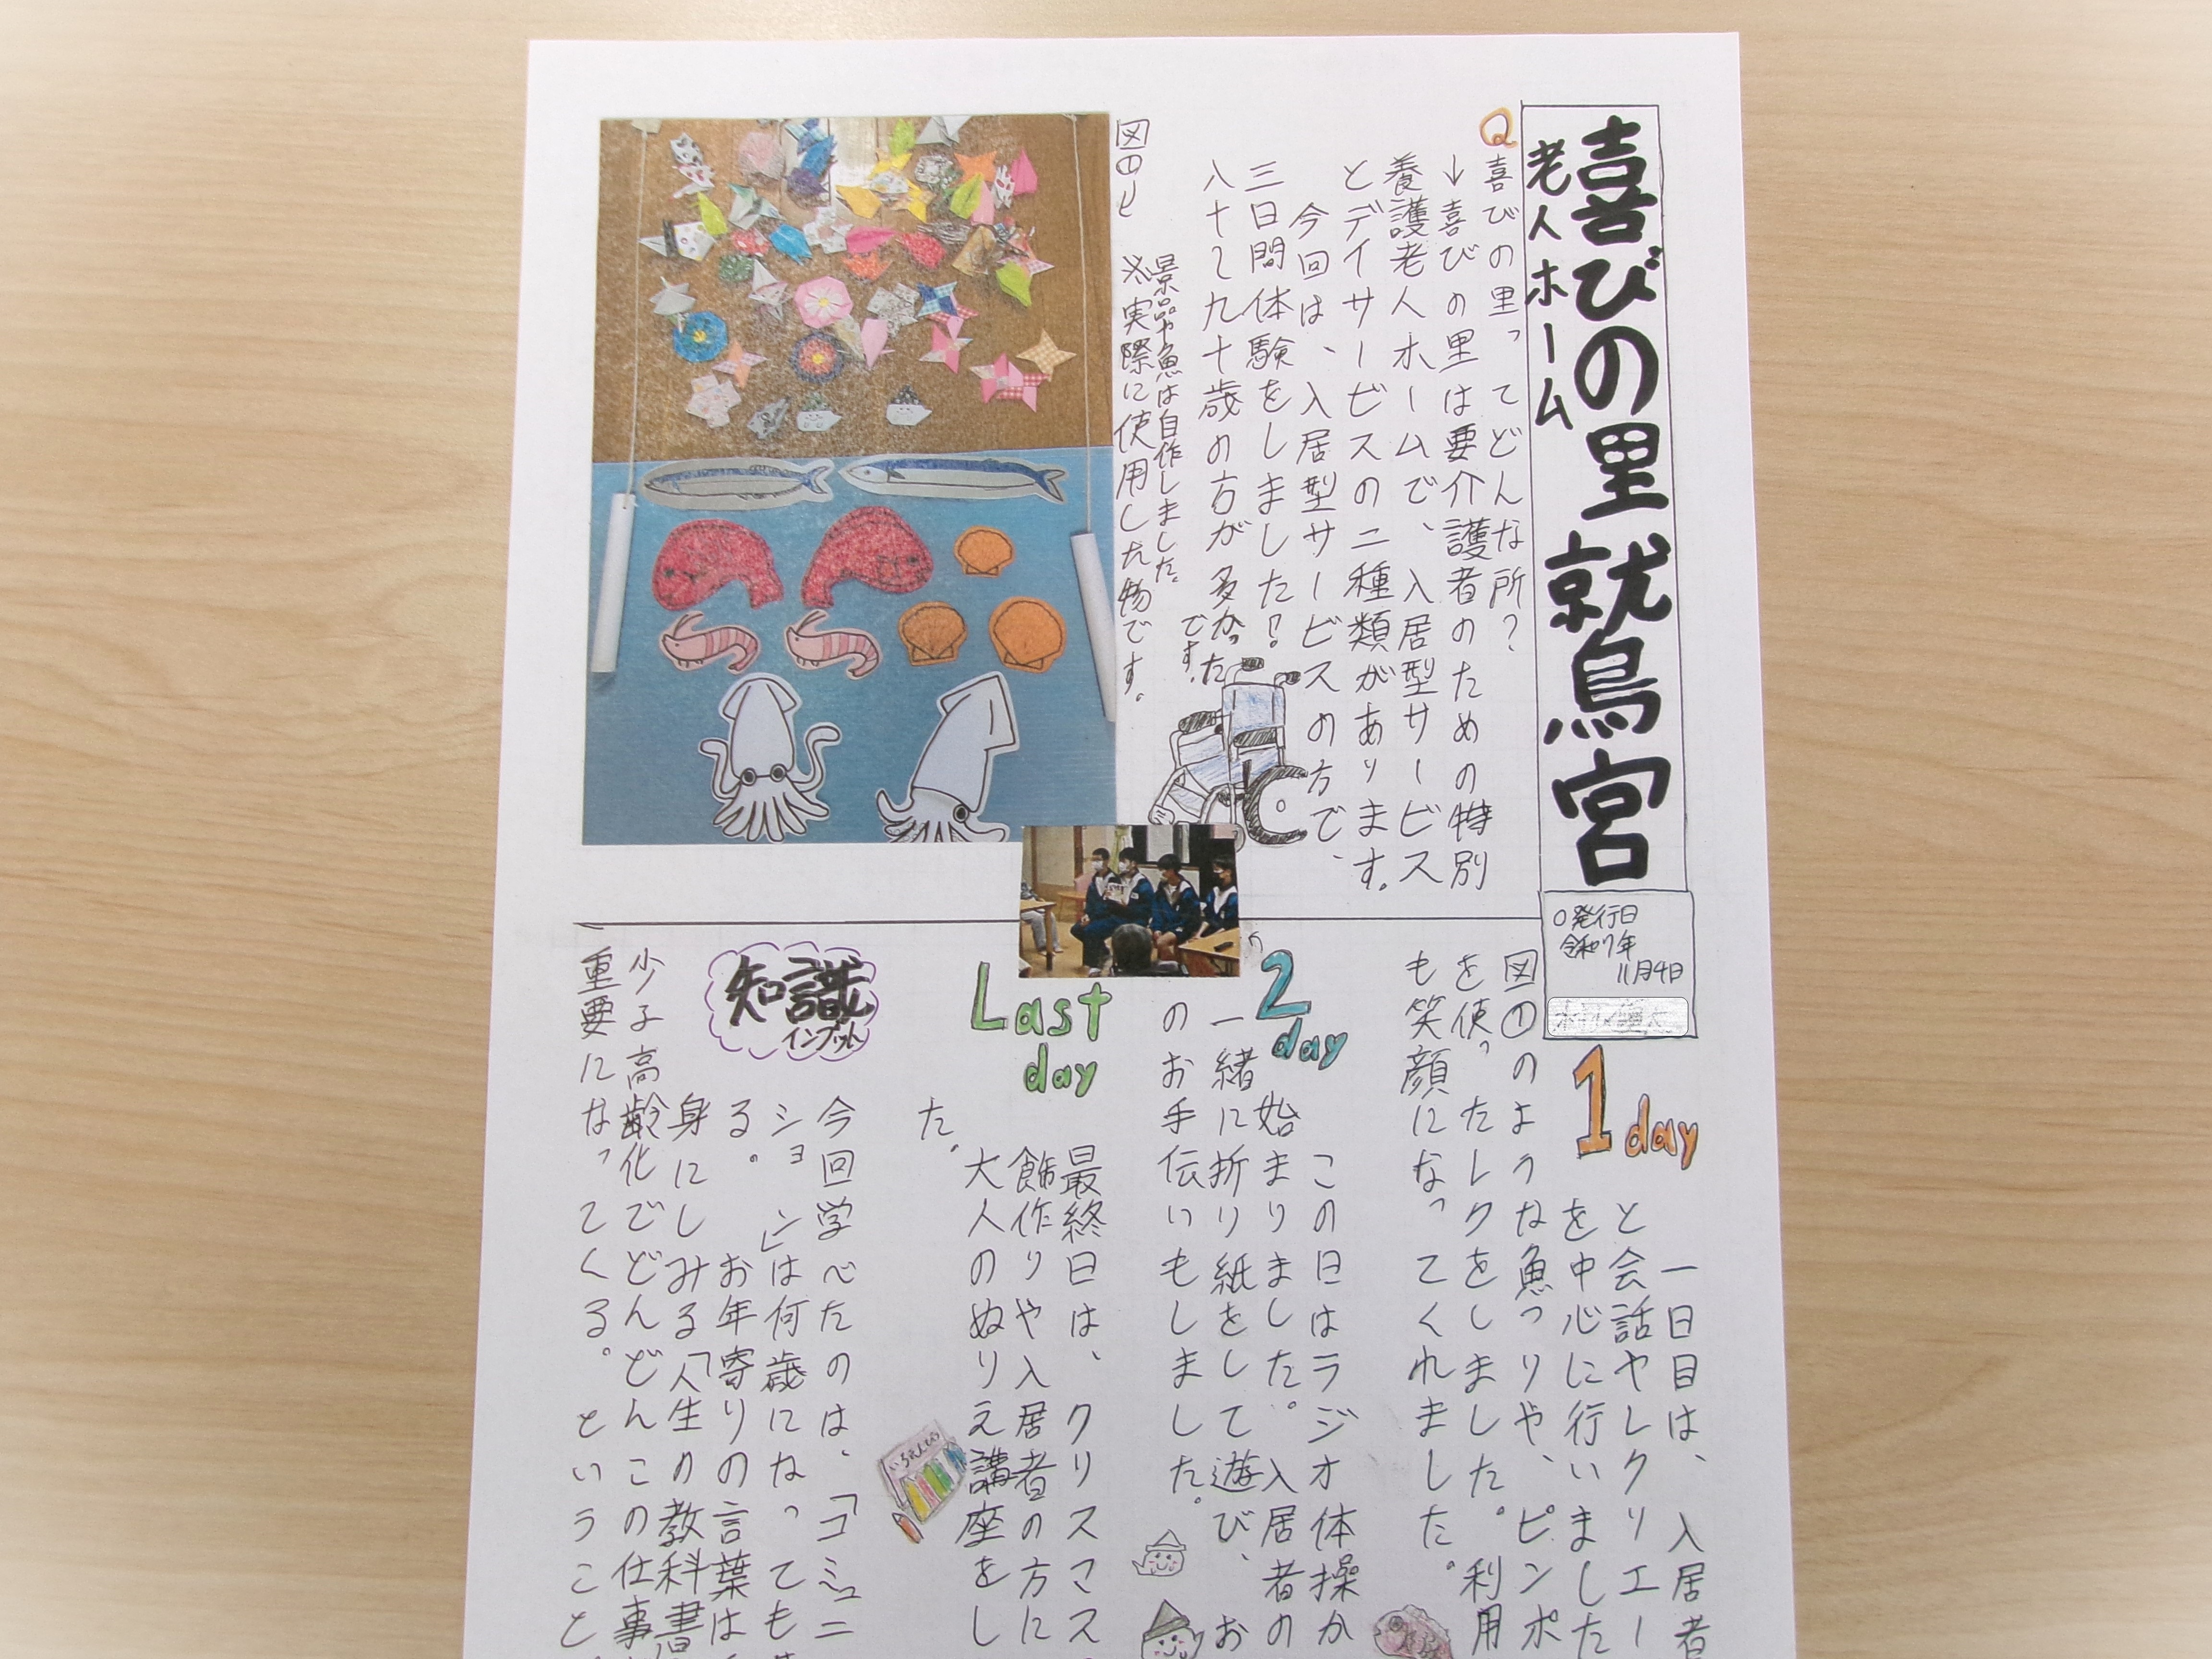 喜びの里 鷲宮
老人ホーム
○発行日
令和7年
11月4日
Q 喜びの里ってどんな所?
→喜びの里は要介護者のための特別
養護老人ホームで、入居型サービス
とデイサービスの二種類があります。
今回は、入居型サービスの方で、
三日間体験をしました!
八十〜九十歳の方が多かった
です。
図①と
景品や魚は自作しました。
※実際に使用した物です。
1day
一日目は、入居者
と会話やレクリエー
を中心に行いました
図①のような魚つりや、ピンポ
を使ったレクをしました。利用
も笑顔になってくれました。
2day
この日はラジオ体操か
始まりました。入居者の
一緒に折り紙をして遊び、お
のお手伝いもしました。
Last day
最終日は、クリスマス
飾作りや入居者の方に
大人のぬりえ講座をし
た。
いろえんぴつ
知識
インプット
今回学べたのは、「コミュニ
ション」は何歳になっても
る。お年寄りの言葉は
身にしみる「人生の教科書
少子高齢化でどんどんこの仕事
重要になってくる。ということ